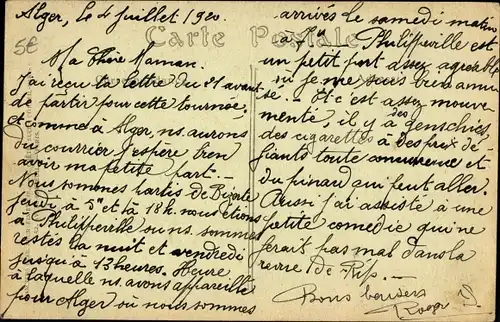 Alger, le 4 Juillet 1920.
5€
Carte Postale
Ma Chère Maman.
J'ai reçu ta lettre du 21 avant
de partir pour cette tournée,
et comme à Alger, ns. aurons
du courrier j'espère bien
avoir ma petite part.—
Nous sommes partis de Bizerte
jeudi à 5h et à 18h. nous étions
à Philippeville où ns. sommes
restés la nuit et vendredi
jusqu'à 13 heures. Heure
à laquelle ns. avons appareillé
pour Alger où nous sommes
arrivés le samedi matin
à 7h. Philippeville est
un petit port assez agréable
où je me suis bien amu
sé.— Et c'est assez mouve
menté, il y a des
des cigarettes à des prix dé-
fiants toute concurrence et
du pinard qui peut aller.
Aussi j'ai assisté à une
petite comédie qui ne
ferait pas mal dans la
revue de
Bons baisers
Roger